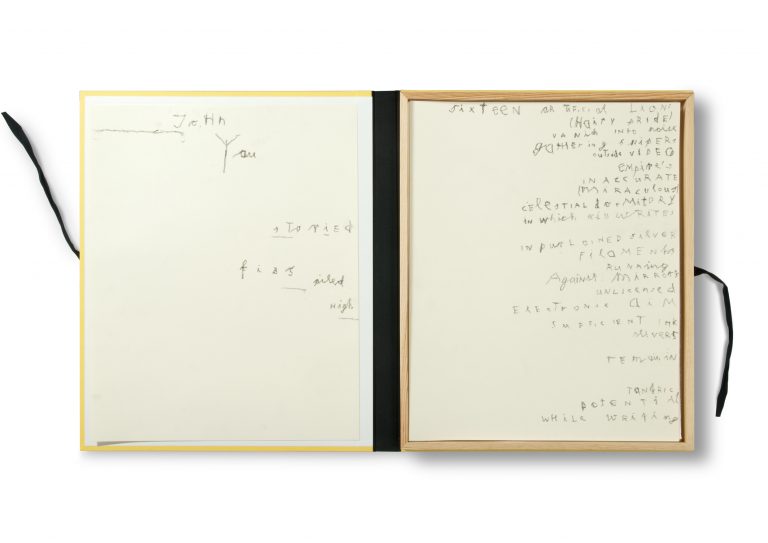 JoHn
You
sToried
fibs
piled
high
sixteen artificial Lions
(HAPPY PRIDE)
VANISH INTO NOISE
gathering SNIPERS
outside VIDEO
EMPIRES
INACCURATE
(MIRACULOUS)
CELESTIAL DORMITORY
in which WRITES
IN PURLOINED SILVER
FILAMENTS
RUNNING
Against
UNLICENSED
ELECTRONIC
INK
TANTRIC
POTENTIAL
WHILE WRITING